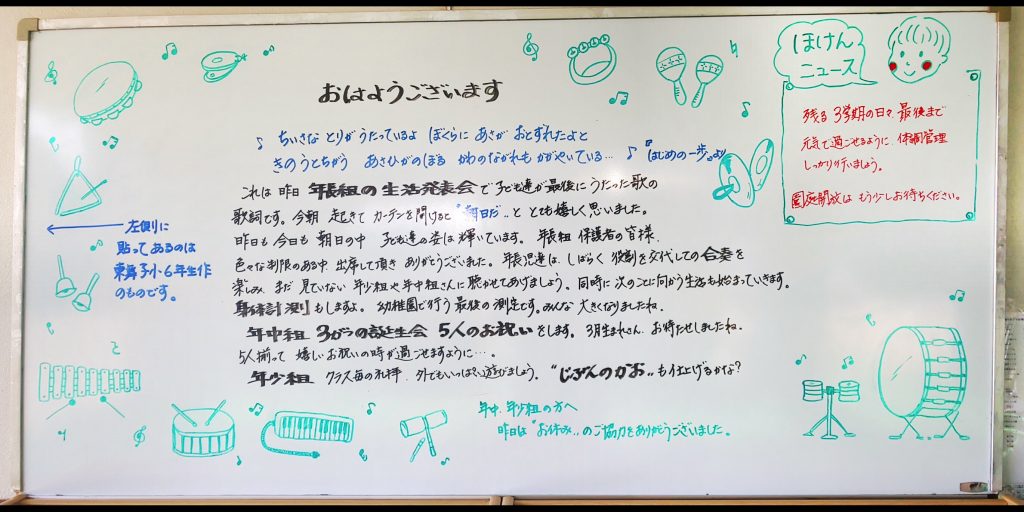 おはようございます
♪ ちいさな とりが うたっているよ ぼくらに あさが おとずれたよと
きのうとちがう あさひがのぼる かわのながれも かがやいている… ♪ 『はじめの一歩』より
これは 昨日 年長組の生活発表会で子ども達が最後にうたった歌の
歌詞です。今朝 起きて カーテンを開けると "朝日だ" と とても嬉しく思いました。
昨日も今日も 朝日の中 子ども達の姿は輝いています。年長組 保護者の皆様、
色々な制限のある中、出席して頂き ありがとうございました。年長児達は、しばらく 役割を交代しての合奏を
楽しみ、まだ 見ていない 年少組や年中組さんに聴かせてあげましょう。同時に 次のことに向かう生活も始まっていきます。
身体計測もしますよ。幼稚園で行う最後の測定です。みんな 大きくなりましたね。
年中組 3がつの誕生会 5人のお祝いをします。3月生まれさん、お待たせしましたね。
5人揃って 嬉しいお祝いの時が過ごせますように…。
年少組 クラス毎の礼拝、外でもいっぱい遊びましょう。"じぶんのかお" も仕上げるかな?
年中、年少組の方へ
昨日は "お休み" のご協力をありがとうございました。
←左側に
貼ってあるのは
小6年生作
のものです。
ほけん
ニュース
残る 3学期の日々、最後まで
元気で過ごせるように、体調管理
しっかり行いましょう。
園庭開放は もう少しお待ちください。